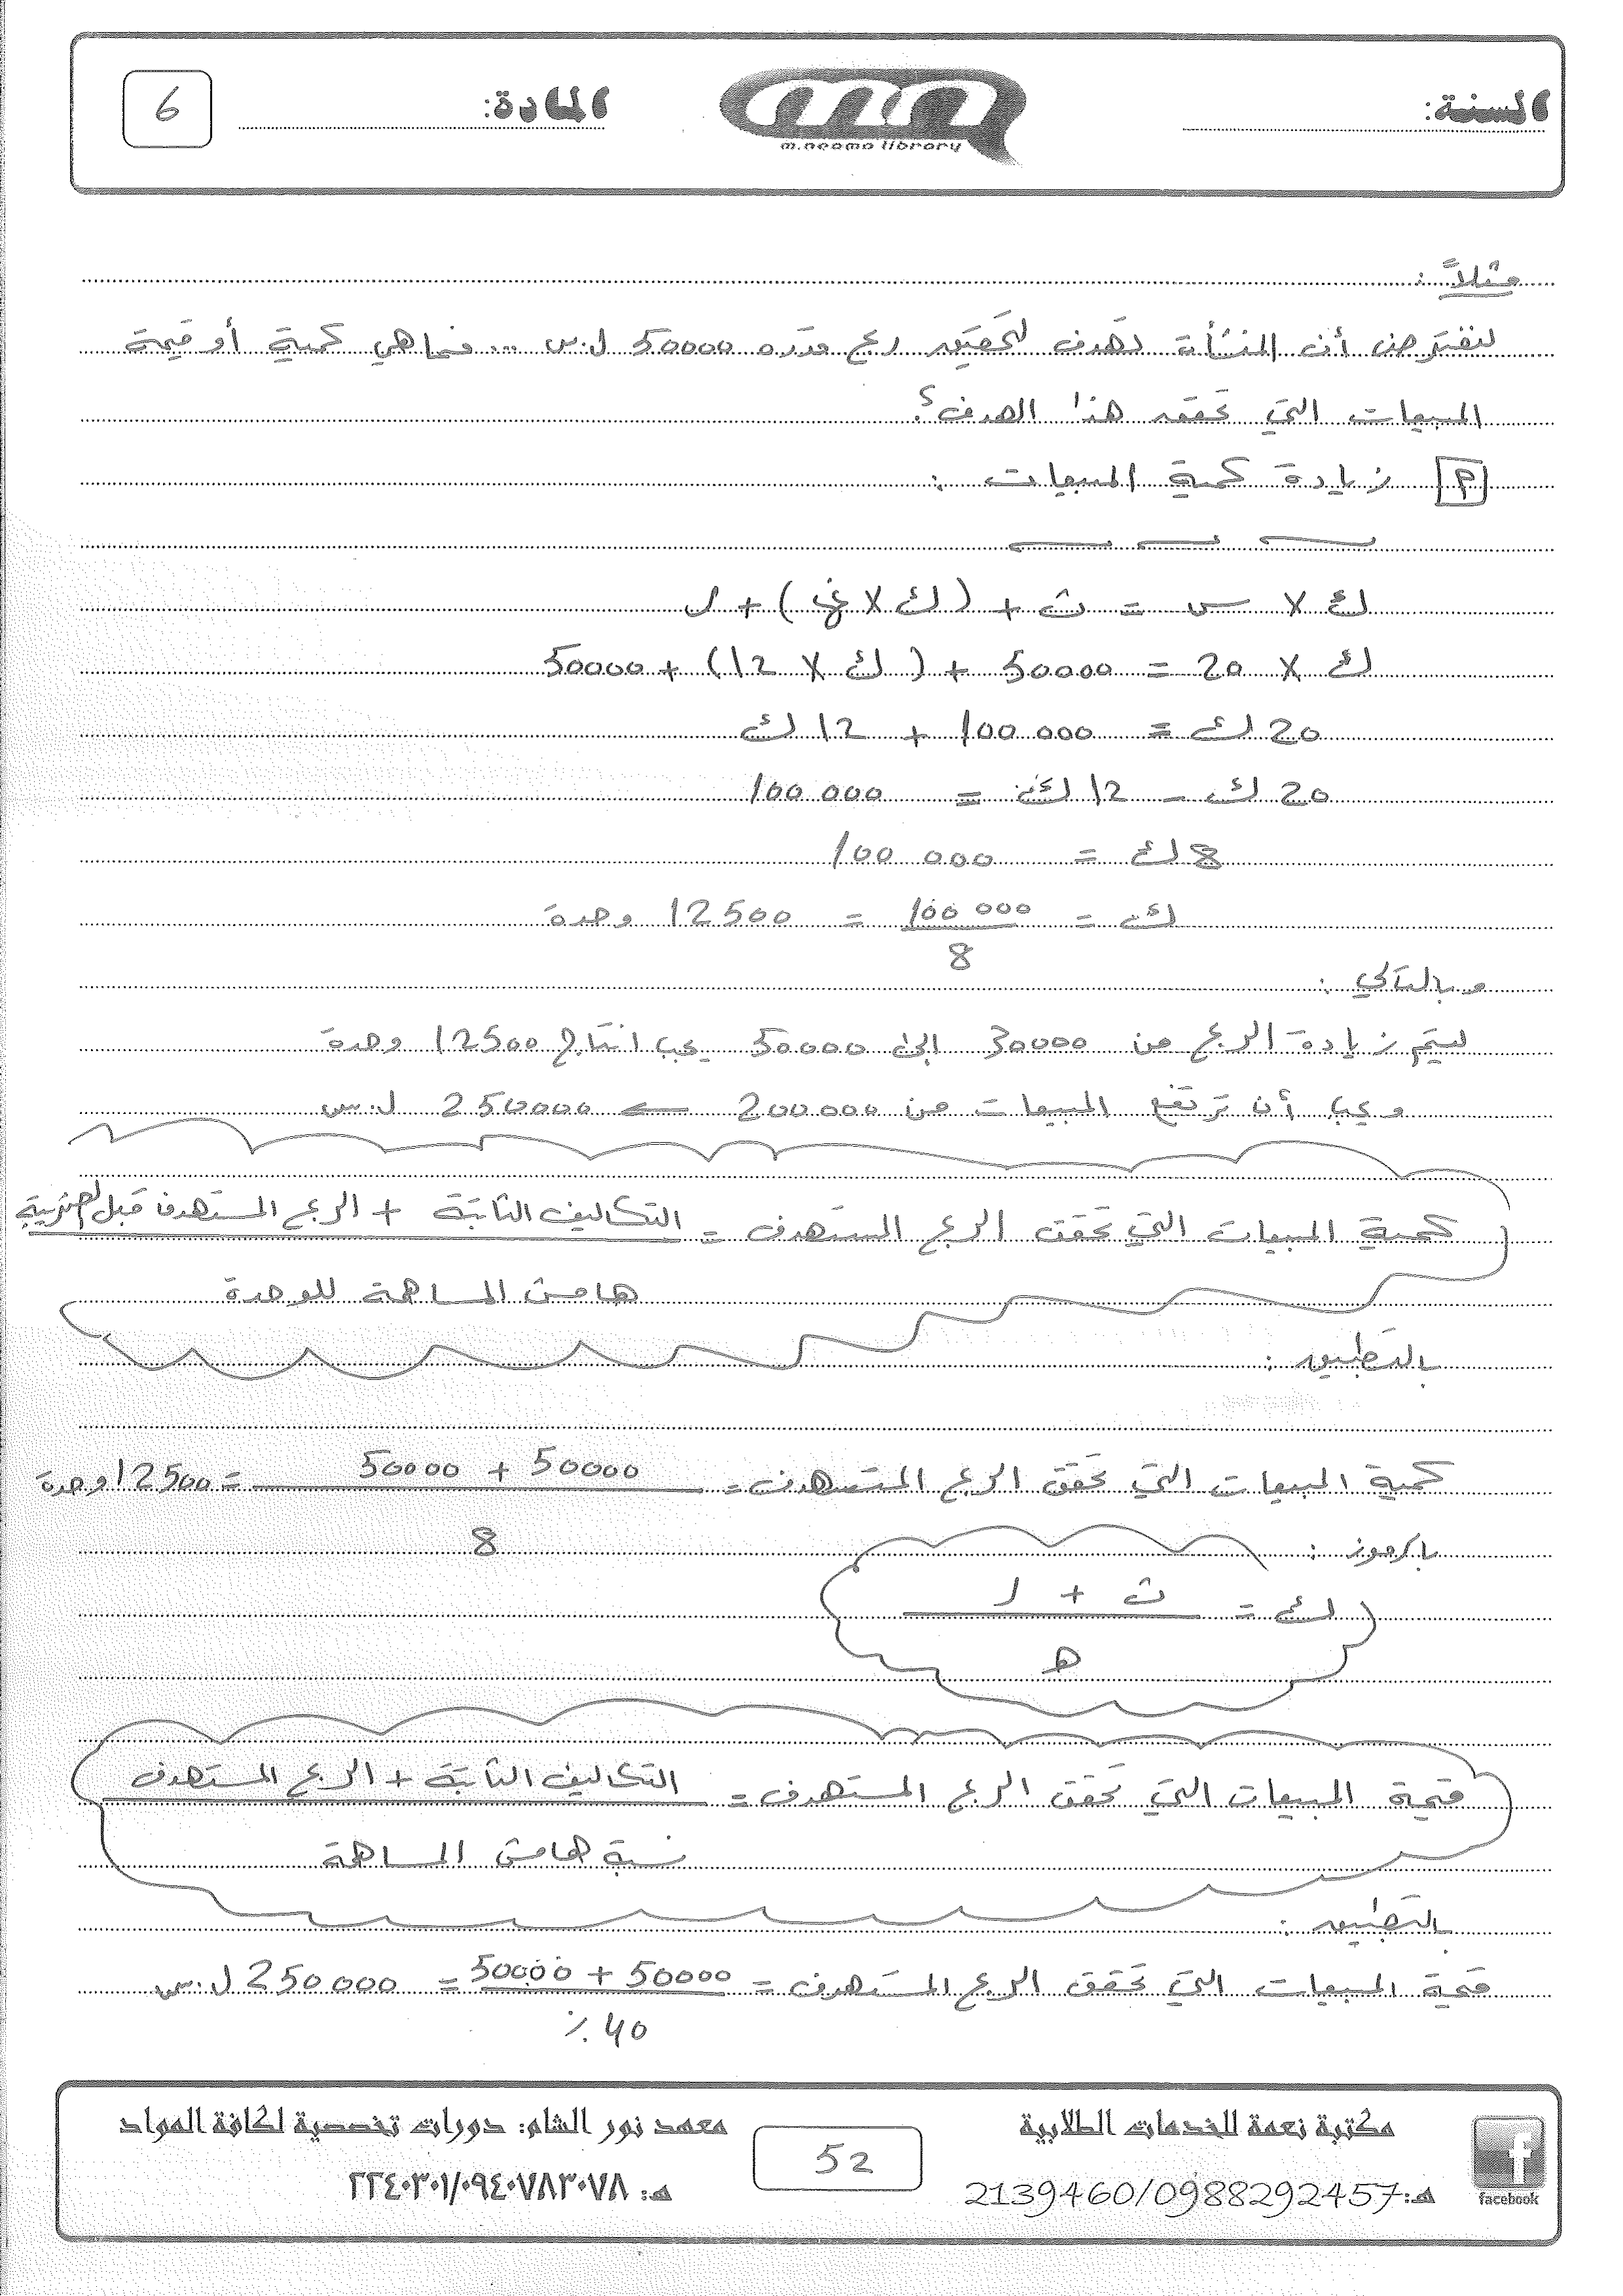 السنة:
m.neama library
المادة:
6
مثلاً:
لنفترض أن المنشأة تهدف لتحقيق ربح قدره 50000 ل.س ... فما هي كمية أو قيمة
المبيعات التي تحقق هذا الهدف؟
P زيادة كمية المبيعات :
ك × س = ث + (ك × غ) + ر
ك × 20 = 50000 + (ك × 12) + 50000
20 ك = 100 000 + 12 ك
20 ك - 12 ك = 100 000
8 ك = 100 000
ك = 100 000 / 8 = 12500 وحدة
وبالتالي :
ليتم زيادة الربح من 30000 إلى 50000 يجب انتاج 12500 وحدة
ويجب أن ترتفع المبيعات من 200000 ← 250000 ل.س
كمية المبيعات التي تحقق الربح المستهدف = التكاليف الثابتة + الربح المستهدف قبل الضريبة
هامش المساهمة للوحدة
بالتطبيق :
كمية المبيعات التي تحقق الربح المستهدف = 50000 + 50000 / 8 = 12500 وحدة
بالرموز :
ك = ث + ر
ه
قيمة المبيعات التي تحقق الربح المستهدف = التكاليف الثابتة + الربح المستهدف
نسبة هامش المساهمة
بالتطبيق :
قيمة المبيعات التي تحقق الربح المستهدف = 50000 + 50000 / 40 ٪ = 250 000 ل.س
facebook
مكتبة نعمة للخدمات الطلابية
هـ: 2139460/0988292457
52
معهد نور الشام: دورات تخصصية لكافة المواد
هـ: ٢٢٤٠٣٠١/٠٩٤٠٧٨٣٠٧٨